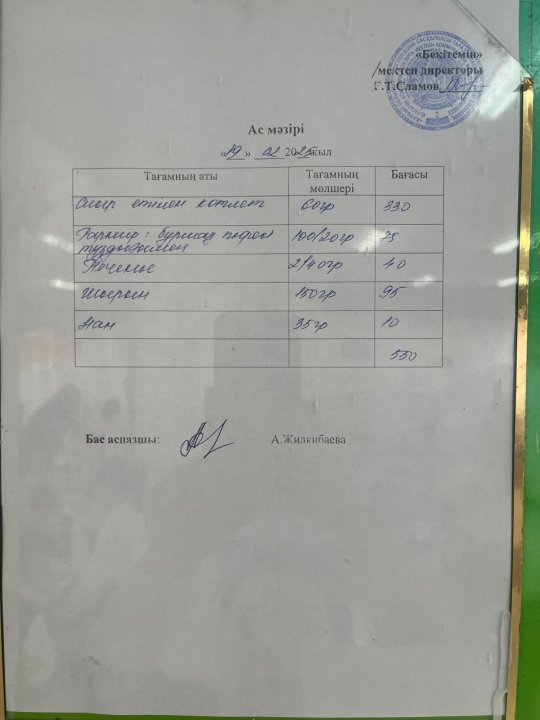 «Бекітемін»
мектеп директоры
Г.Т.Сламов
Ас мәзірі
«19» 02 2025 жыл
Тағамның аты Тағамның мөлшері Бағасы
Сиыр етінен котлет 60гр 330
Гарнир: бұршақ пюресі 100/20гр 75
тұздығымен
Печенье 2/40гр 40
Шырын 150гр 95
Нан 35гр 10
550
Бас аспазшы: А.Жилкибаева